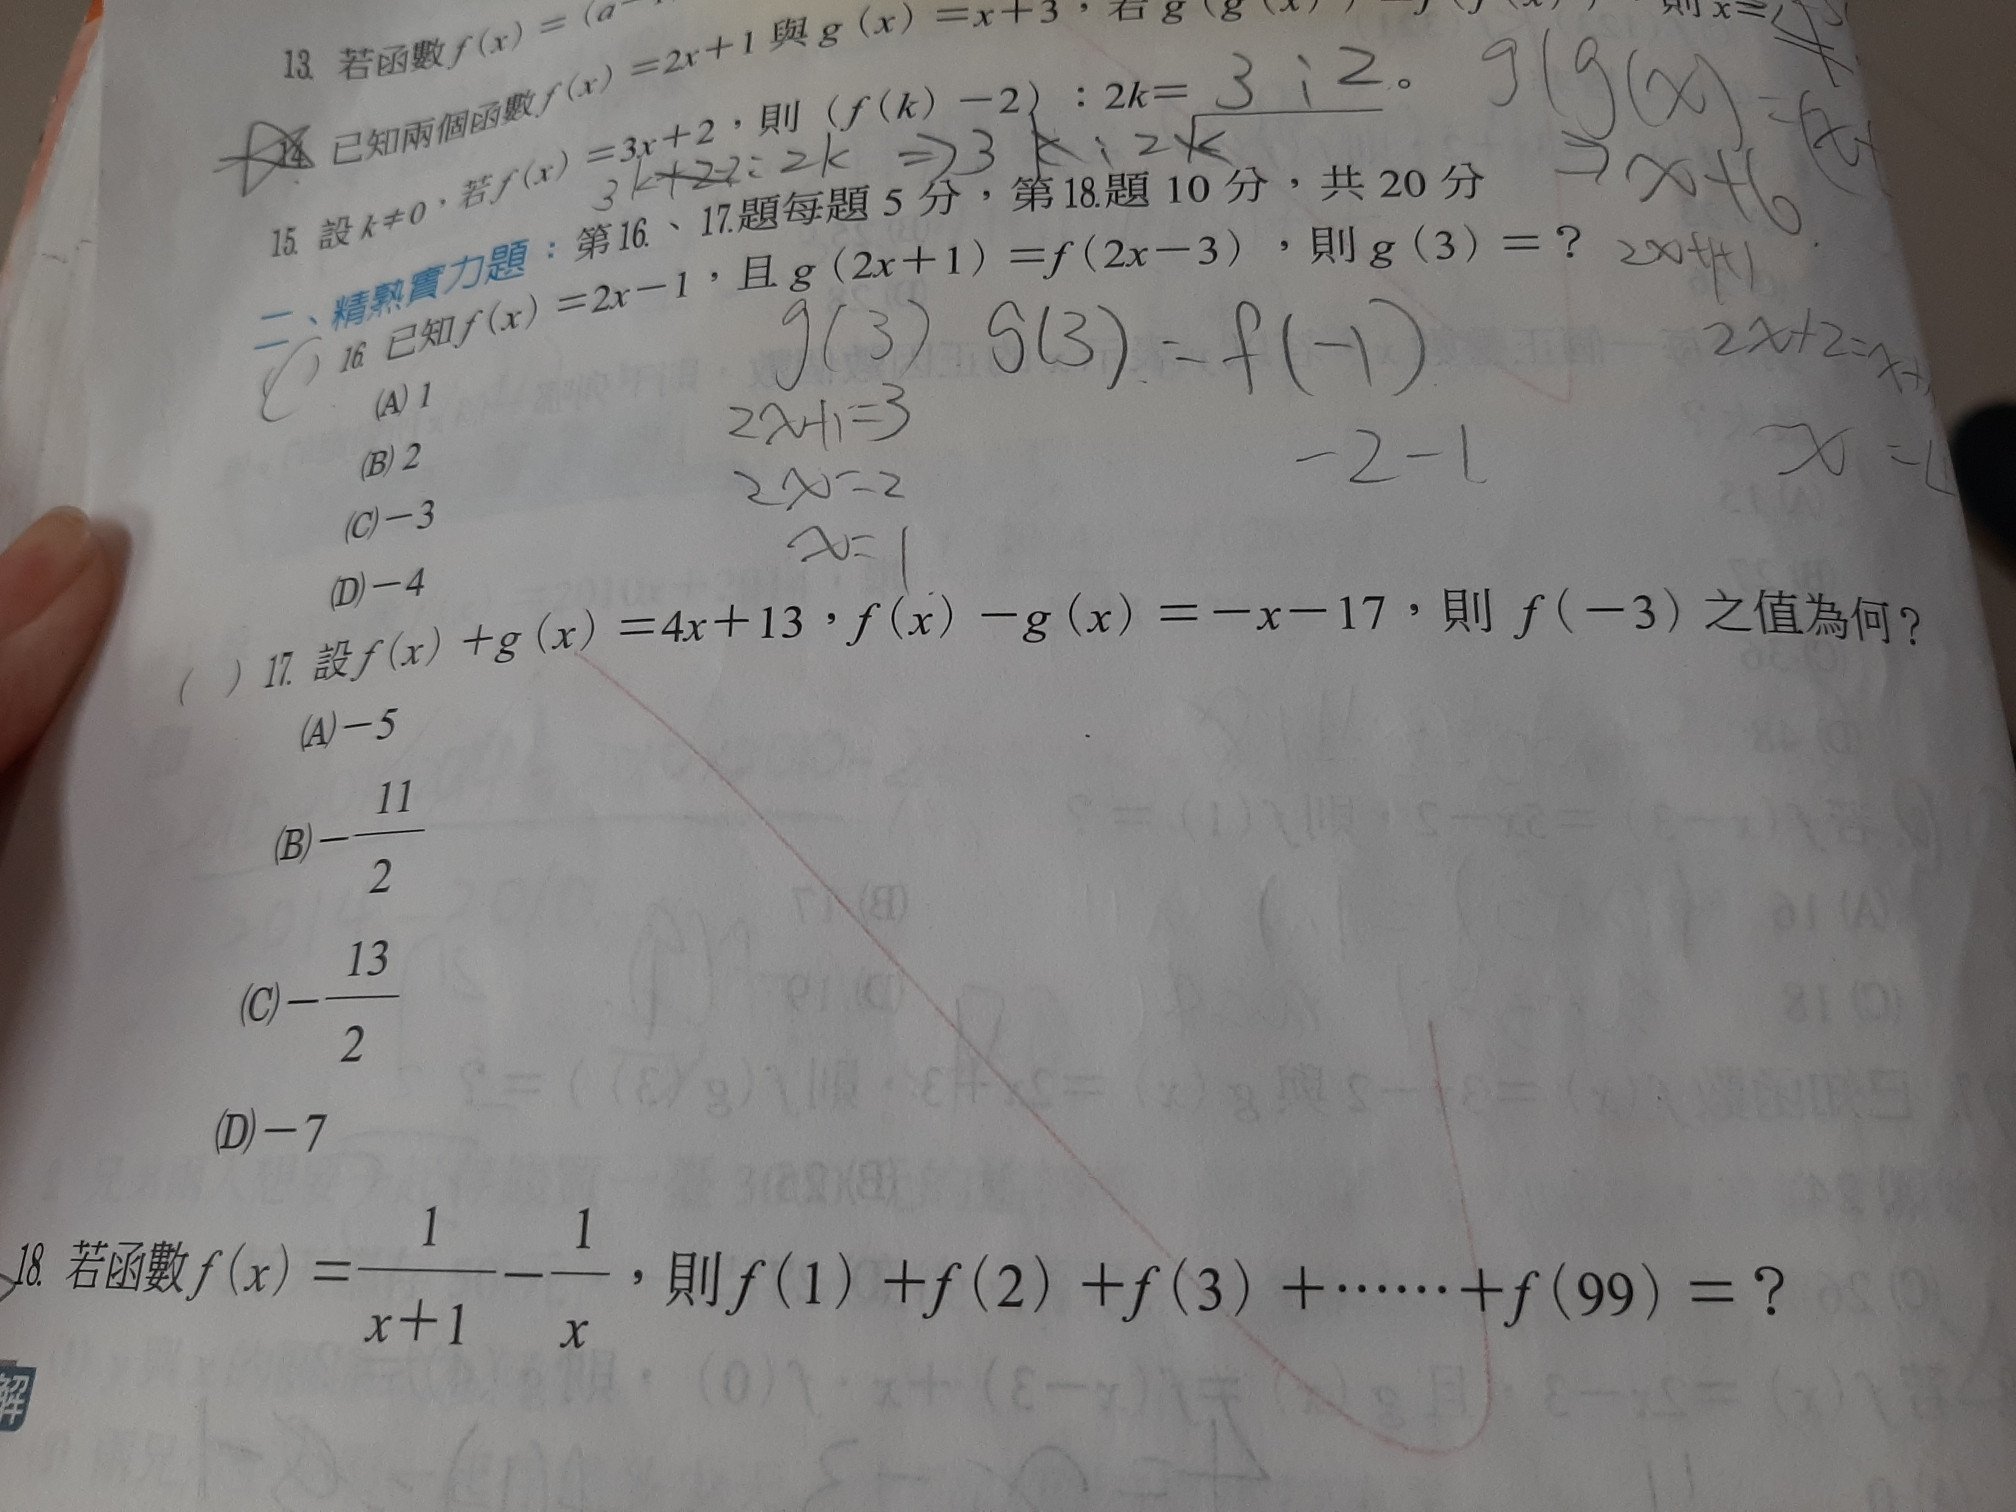 13. 若函數 f(x) = (a-
14. 已知兩個函數 f(x) =2x+1 與 g(x) =x+3,若 g(g(x)) =f(f(x)),則 x=
15. 設 k≠0,若 f(x) =3x+2,則 (f(k) -2) : 2k= 3:2。
g(g(x)
⇒ x+6
3k+2-2:2k ⇒ 3k:2k
2x+1+1
2x+2=x+
x=
二、精熟實力題:第16.、17.題每題 5 分,第18.題 10 分,共 20 分
( ) 16. 已知 f(x) =2x-1,且 g(2x+1) =f(2x-3),則 g(3) =?
(A) 1
(B) 2
(C) -3
(D) -4
g(3) g(3) = f(-1)
2x+1=3
-2-1
2x=2
x=1
( ) 17. 設 f(x) +g(x) =4x+13,f(x) -g(x) =-x-17,則 f(-3) 之值為何?
(A) -5
(B) -11/2
(C) -13/2
(D) -7
18. 若函數 f(x) = 1/(x+1) - 1/x,則 f(1) +f(2) +f(3) +……+f(99) =?
解